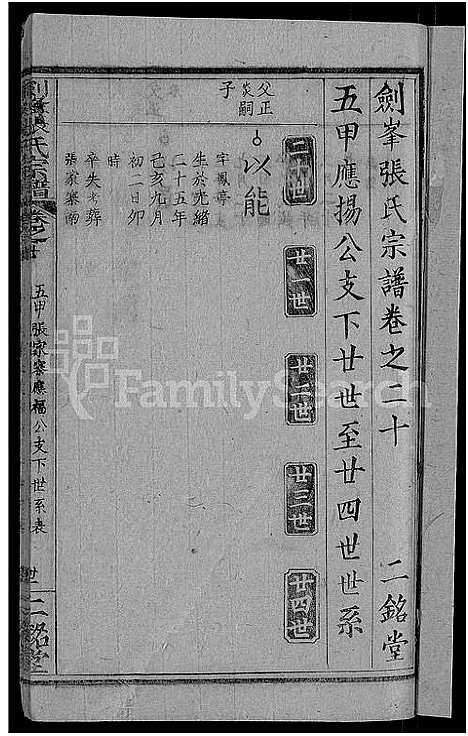 劍峯張氏宗譜卷之二十 二銘堂
五甲應揚公支下廿世至廿四世世系
二十世
廿一世
廿二世
廿三世
廿四世
父正
炎嗣
子
以能
字鳳亭
生於光緒
二十五年
己亥九月
初二日卯
時
卒失考葬
張家寨南
劍峯張氏宗譜 卷之廿
五甲張家寨應福公支下世系表
二銘堂
FamilySearch